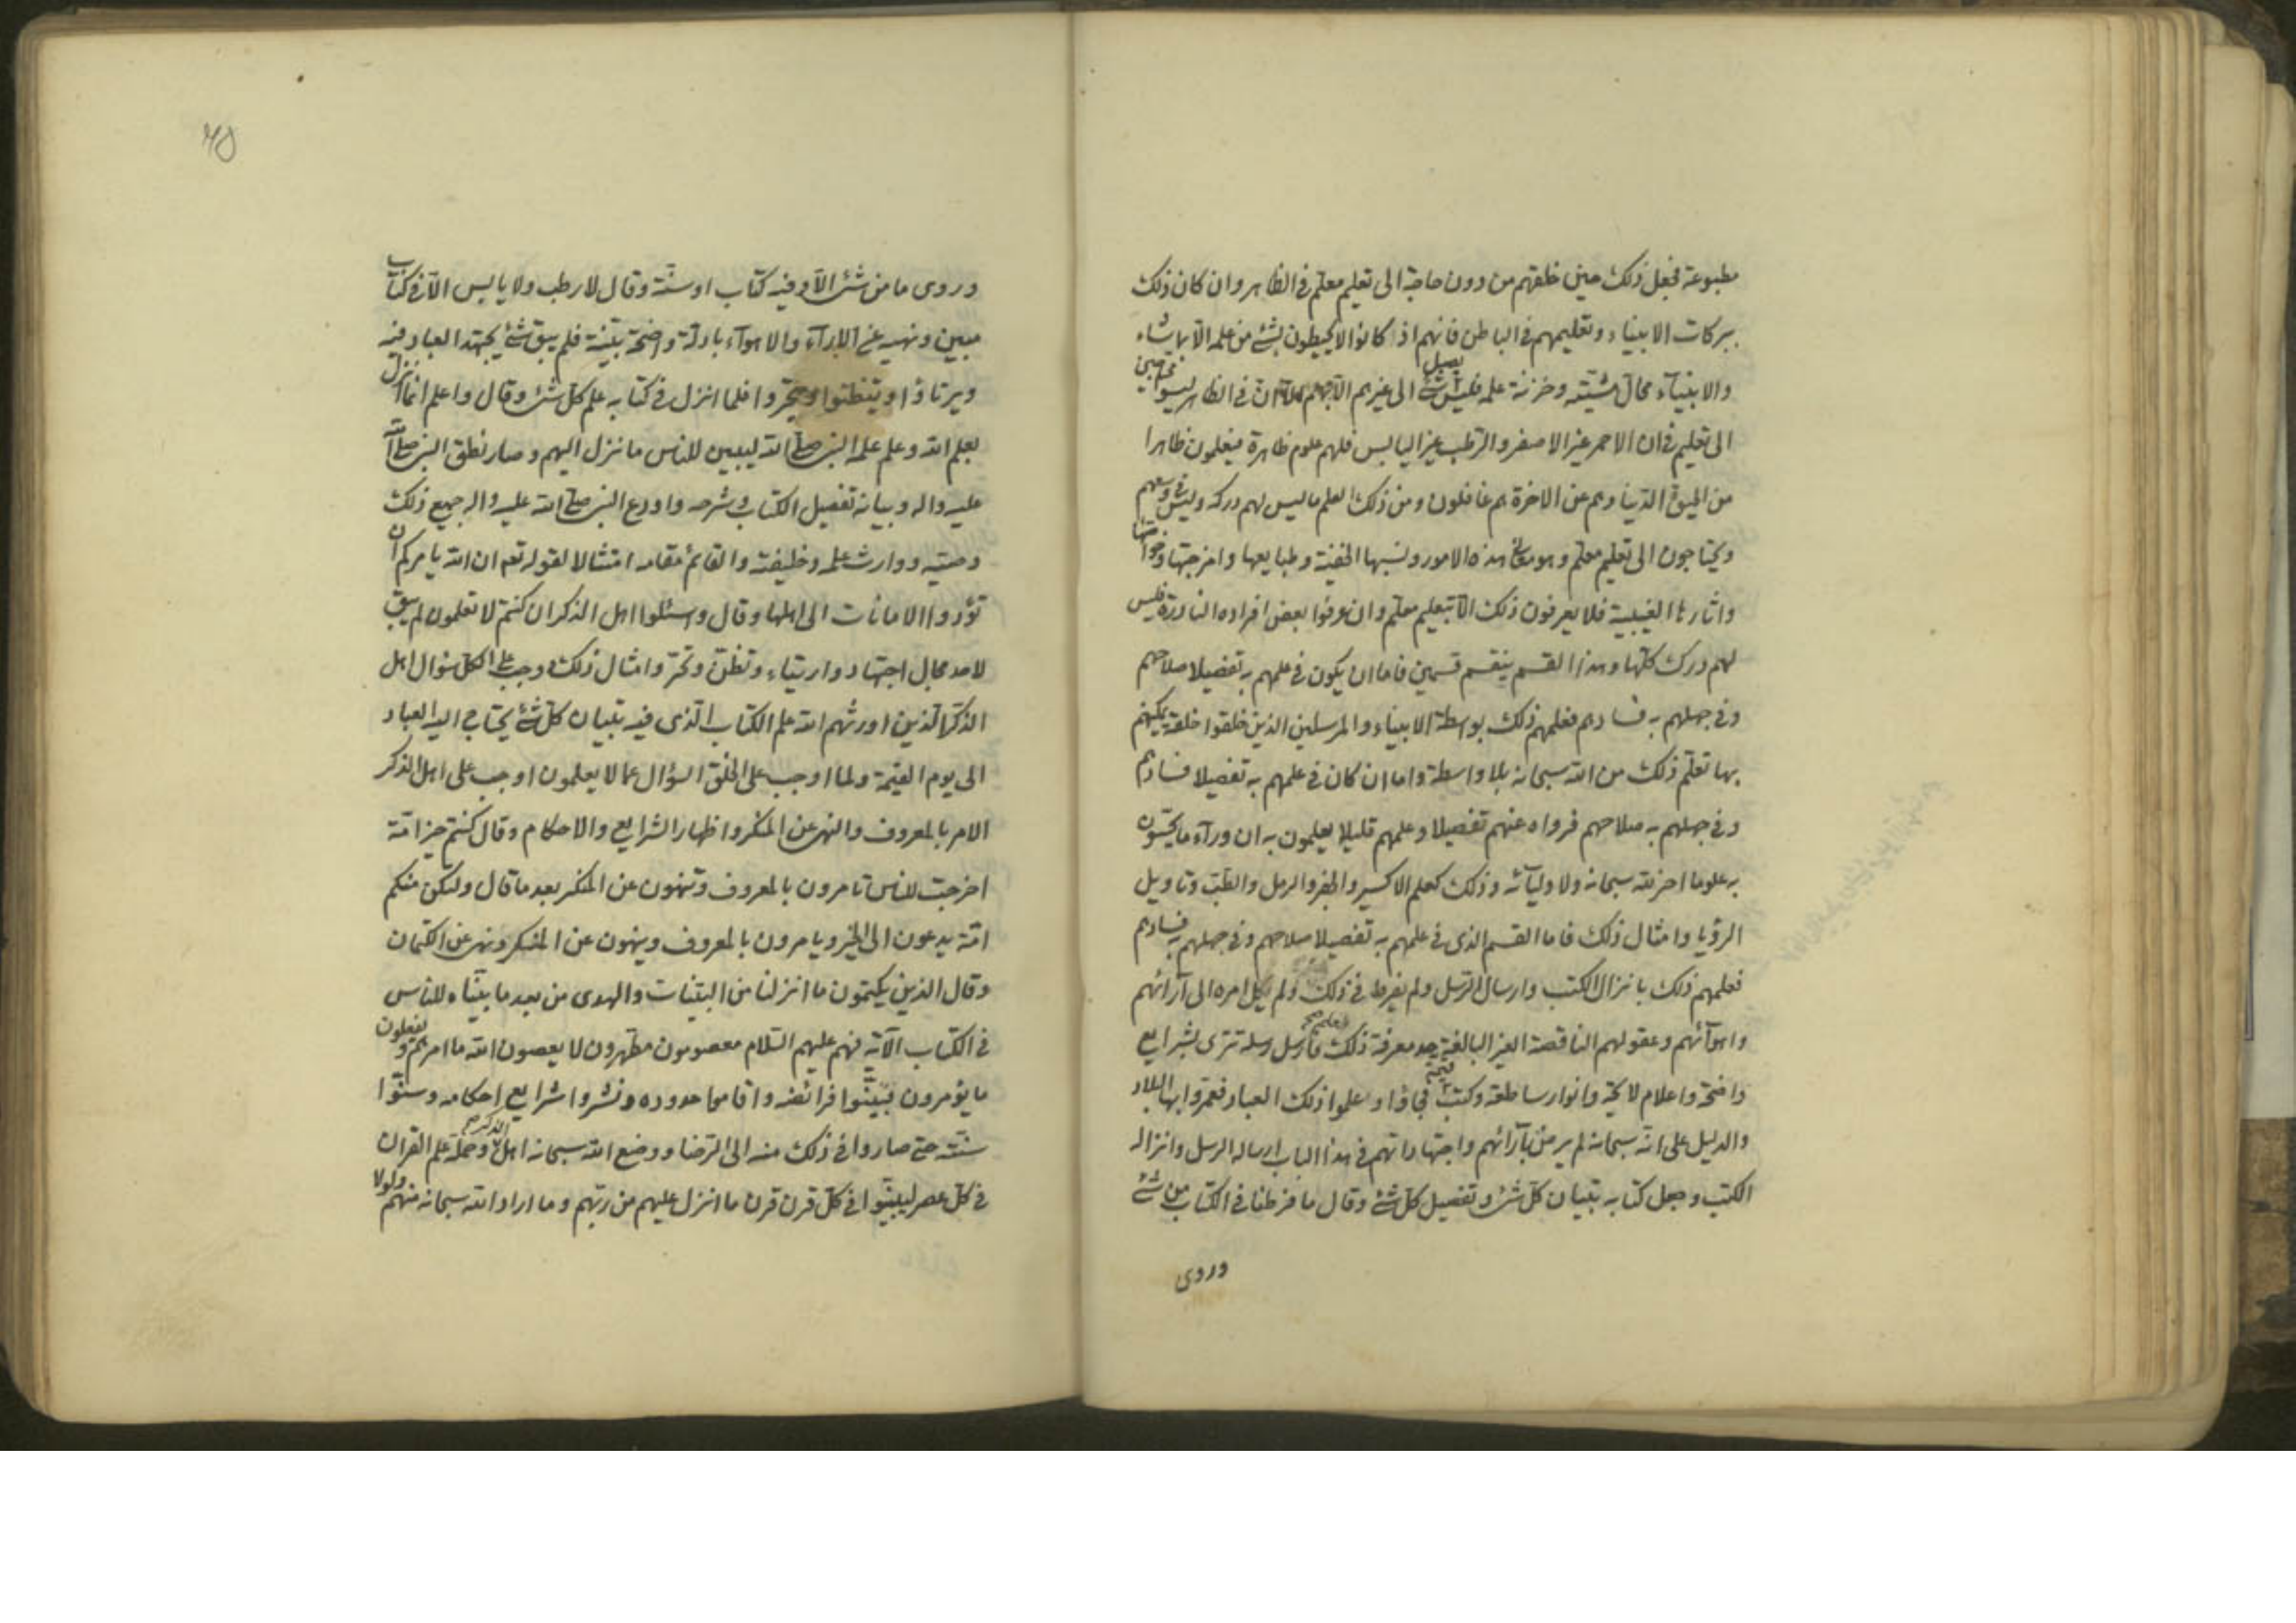 مطبوعة فجعل ذلك حين خلقهم من دون حاجة الى تعليم معلم في الظاهر وان كان ذلك
ببركات الانبياء وتعليمهم في الباطن فانهم اذا كانوا لا يحيطون بشئ من علمه الا بما يشاء
والانبيآء محال مشيّته وخزنة علمه فليس شئ يصل الى غيرهم الا بهم الا ان في الظاهر ليسوا محتاجين
الى تعليم في ان الاحمر غير الاصفر والرّطب غير اليابس فلهم علوم ظاهرة فيعلمون ظاهرا
من الحيوة الدّنيا وهم عن الاخرة هم غافلون ومن ذلك العلم ما ليس لهم دركه وليس في وسعهم
ويحتاجون الى تعليم معلّم وهو معانى هذه الامور ونسبها الخفيّة وطبايعها وامزجتها وخواصّها
واثارها الغيبية فلا يعرفون ذلك الّا بتعليم معلّم وان عرفوا بعض افراده النادرة فليس
لهم درك كلّها وهذا القسم ينقسم قسمين فاما ان يكون في علمهم به تفصيلا صلاحهم
وفي جهلهم به فسادهم فعلمهم ذلك بواسطة الانبياء والمرسلين الذين خلقوا خلقة يمكنهم
بها تعلّم ذلك من الله سبحانه بلا واسطة واما ان كان في علمهم به تفصيلا فسادهم
وفي جهلهم به صلاحهم فزواه عنهم تفصيلا وعلمهم قليلا يعلمون به ان ورآء ما يحسّون
به علوما اخر لله سبحانه ولاوليآئه وذلك كعلم الاكسير والجفر والرمل والطبّ وتاويل
الرؤيا وامثال ذلك فاما القسم الذى في علمهم به تفصيلا صلاحهم وفي جهلهم به فسادهم
فعلمهم ذلك بانزال الكتب وارسال الرّسل ولم يفرط في ذلك ولم يكل امره الى آرائهم
واهوآئهم وعقولهم الناقصة الغير البالغة حد معرفة ذلك فارسل رسله تترى بشرايع
واضحة واعلام لائحة وانوار ساطعة وكتب قيمة فجاؤا وعلموا ذلك العباد فعمروا بها البلاد
والدليل على انّه سبحانه لم يرض بآرائهم واجتهاداتهم في هذا الباب ارساله الرسل وانزاله
الكتب وجعل كتابه تبيان كلّ شئ وتفصيل كلّ شئ وقال ما فرطنا في الكتاب من شئ
وروى
وروى ما من شئ الّا وفيه كتاب او سنّة وقال لا رطب ولا يابس الّا في كتاب
مبين ونهيه عن الارآء والاهوآء بادلّة واضحة بيّنة فلم يبق شئ يجتهد العباد فيه
ويرتاؤا او يتظنّوا او يتحرّوا فلما انزل في كتابه علم كلّ شئ وقال واعلم انما انزل
بعلم الله وعلم علمه النبى صلى الله ليبين للناس ما نزل اليهم وصار نطق النبى صلى الله
عليه واله وبيانه تفصيل الكتاب وشرحه واودع النبى صلى الله عليه واله جميع ذلك
وصيّه ووارث علمه وخليفته والقائم مقامه امتثالا لقوله تعه ان الله يامركم ان
تؤدوا الامانات الى اهلها وقال وسئلوا اهل الذكر ان كنتم لا تعلمون لم يبق
لاحد مجال اجتهاد وارتياء وتظنّ وتحرّ وامثال ذلك ووجب على الكل سؤال اهل
الذكر الّذين اورثهم الله علم الكتاب الّذى فيه تبيان كلّ شئ يحتاج اليه العباد
الى يوم القيمة ولما اوجب على الخلق السؤال عما لا يعلمون اوجب على اهل الذكر
الامر بالمعروف والنهى عن المنكر واظهار الشرايع والاحكام وقال كنتم خير امّة
اخرجت للناس تامرون بالمعروف وتنهون عن المنكر بعد ما قال ولتكن منكم
امّة يدعون الى الخير ويامرون بالمعروف وينهون عن المنكر ونهى عن الكتمان
وقال الذين يكتمون ما انزلنا من البيّنات والهدى من بعد ما بيّنّاه للناس
في الكتاب الآية فهم عليهم السّلام معصومون مطهّرون لا يعصون الله ما امرهم ويفعلون
ما يؤمرون فبيّنوا فرائضه واقاموا حدوده ونشروا شرايع احكامه وسنّوا
سنّته حتى صاروا في ذلك منه الى الرّضا ووضع الله سبحانه اهل الذكر وحملة علم القران
في كلّ عصر ليبيّنوا في كلّ قرن قرن ما انزل عليهم من ربّهم وما اراد الله سبحانه منهم ولولا